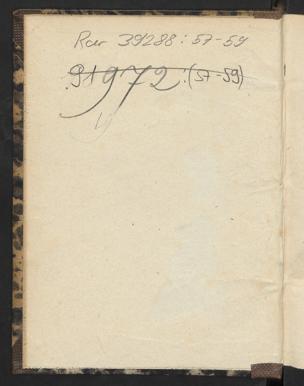 Rar 39288 : 57-59
91972 : (57-59)